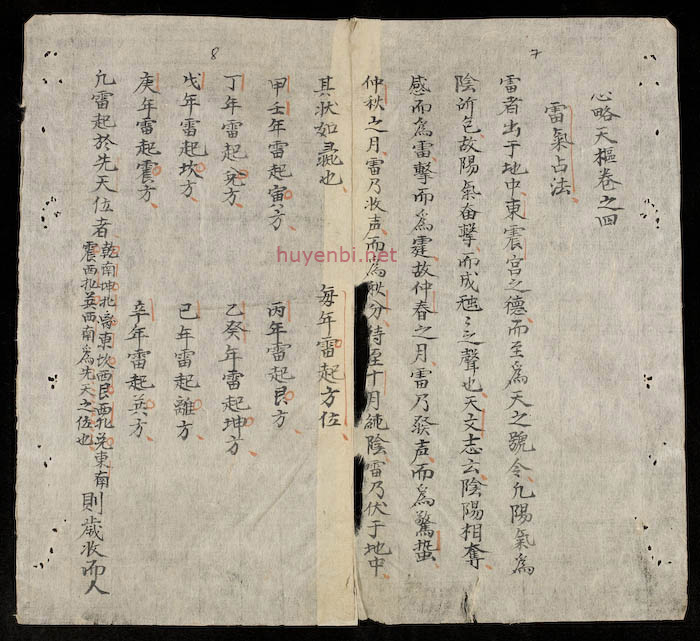 7
心略天樞卷之四
雷氣占法
雷者出于地中東震宮之德而至為天之號令凡陽氣為
陰所包故陽氣奮擊而成之聲也天文志云陰陽相奪
感而為雷擊而為霆故仲春之月雷乃發声而為驚蟄
仲秋之月雷乃收声而為秋分待至十月純陰雷乃伏于地中
8
其状如彘也
每年雷起方位
甲壬年雷起寅方 丙年雷起艮方
丁年雷起兌方 乙癸年雷起坤方
戊年雷起坎方 己年雷起離方
庚年雷起震方 辛年雷起巽方
凡雷起於先天位者
乾南坤北离東坎西艮西北兌東南
震西北巽西南為先天之位也
則歲收而人
huyenbi.net